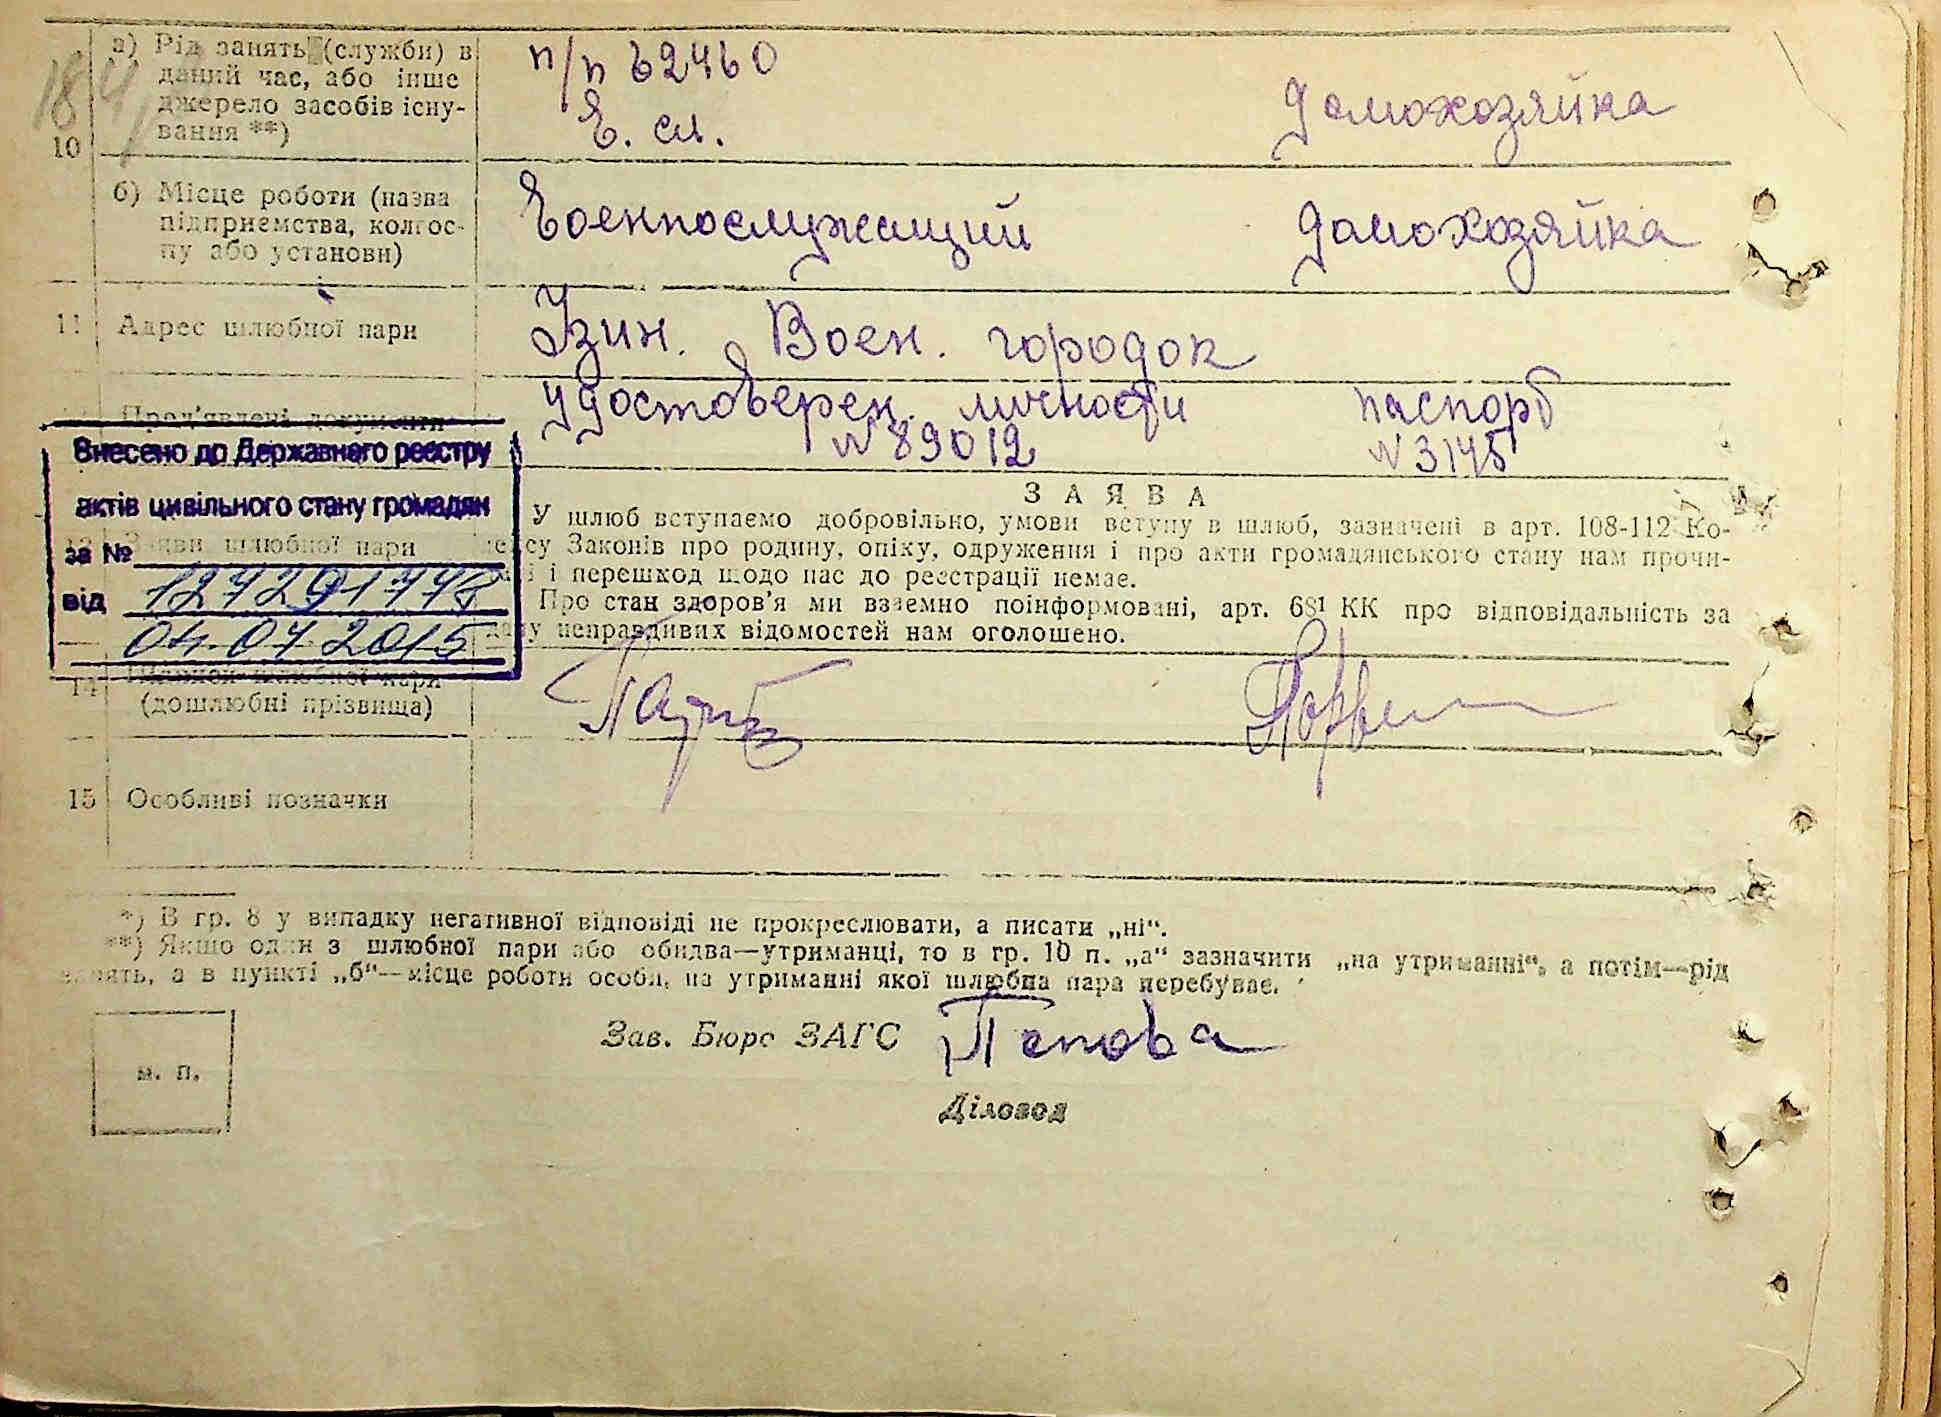 184
10 а) Рід занять (служби) в даний час, або інше джерело засобів існування **)
п/п 62460
В. сл.
домохозяйка
б) Місце роботи (назва підприємства, колгоспу або установи)
Военнослужащий
домохозяйка
11 Адрес шлюбної пари
Узин. Воен. городок
Пред'явлені документи
Удостоверен. личности
N 89012
паспорт
N 3145
Внесено до Державного реєстру
актів цивільного стану громадян
за №
від 127291778
04.07.2015
Заяви шлюбної пари
ЗАЯВА
У шлюб вступаємо добровільно, умови вступу в шлюб, зазначені в арт. 108-112 Ко-
дексу Законів про родину, опіку, одруження і про акти громадянського стану нам прочи-
і перешкод щодо нас до реєстрації немає.
Про стан здоров'я ми взаємно поінформовані, арт. 68¹ КК про відповідальність за
дачу неправдивих відомостей нам оголошено.
14
шлюбної пари
(дошлюбні прізвища)
15 Особливі позначки
*) В гр. 8 у випадку негативної відповіді не прокреслювати, а писати „ні“.
**) Якщо один з шлюбної пари або обидва—утриманці, то в гр. 10 п. „а“ зазначити „на утриманні“, а потім—рід
занять, а в пункті „б“—місце роботи особи, на утриманні якої шлюбна пара перебуває.
Зав. Бюро ЗАГС Попова
м. п.
Діловод